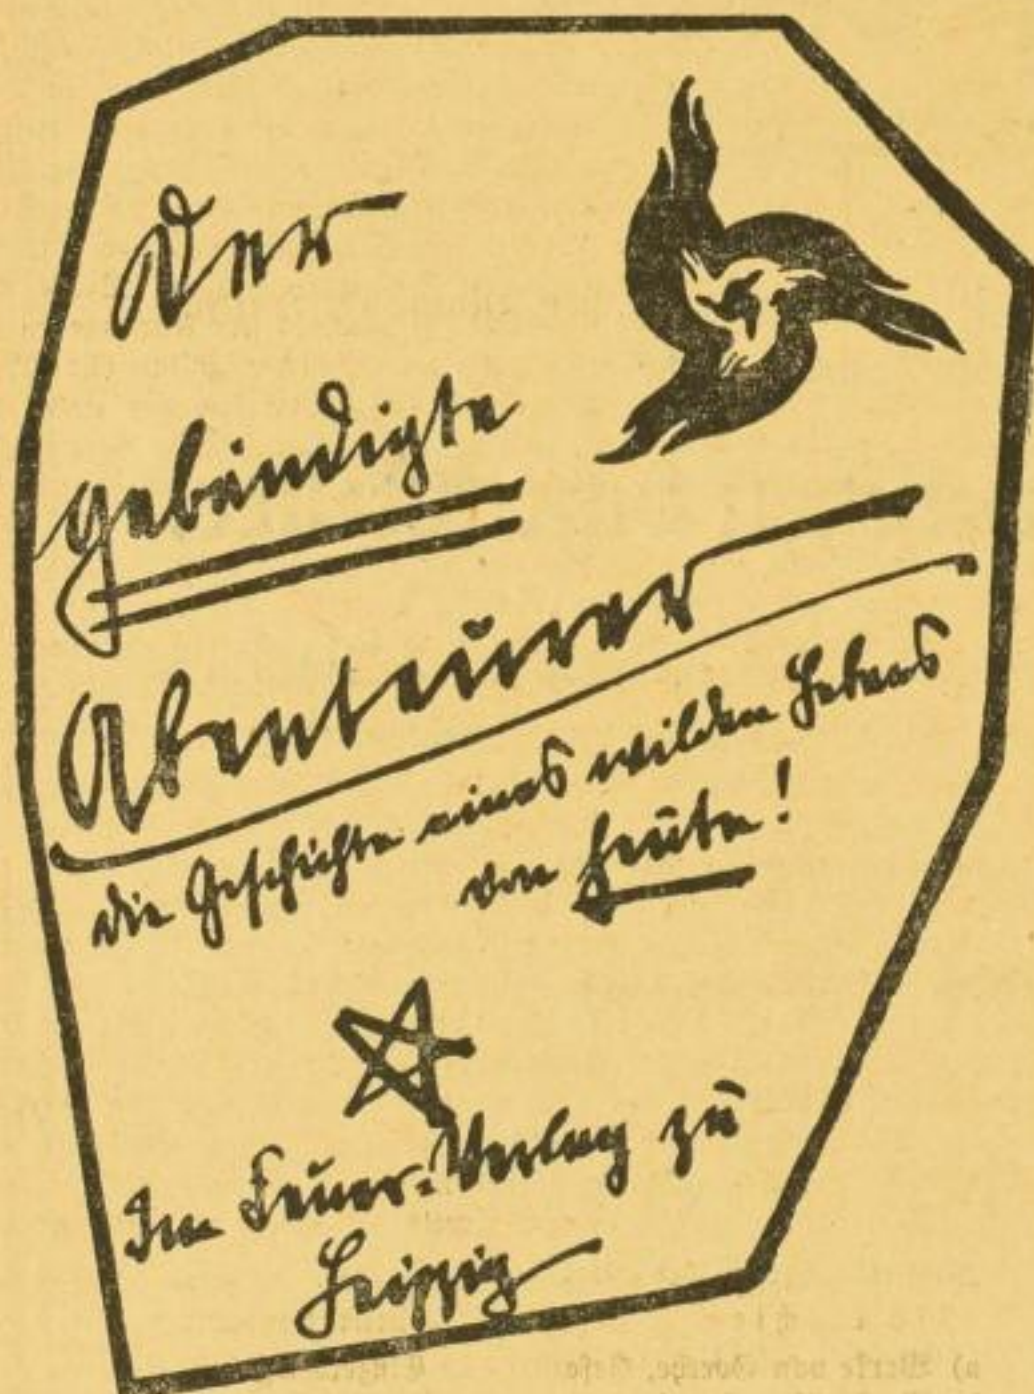 Der
gebändigte
Abenteurer
die Geschichte eines wilden Lebens
von heute!
Im Feuer-Verlag zu
Leipzig
a) Werke von